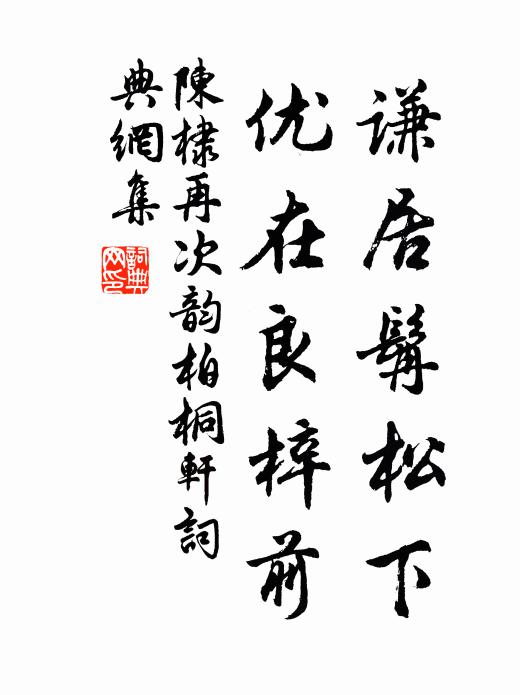 谦居髯松下
优在良梓前
陳棣再次韵柏桐軒詞
典網集
詞典網印